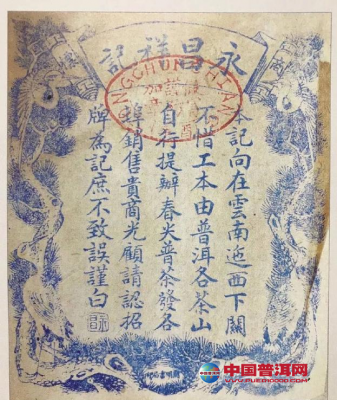 永昌祥記
本記向在雲南迤西下關
不惜工本由普洱各茶山
自行提辦春尖普茶發各
埠銷售貴商光顧請認招
牌為記庶不致誤謹白
中国普洱网